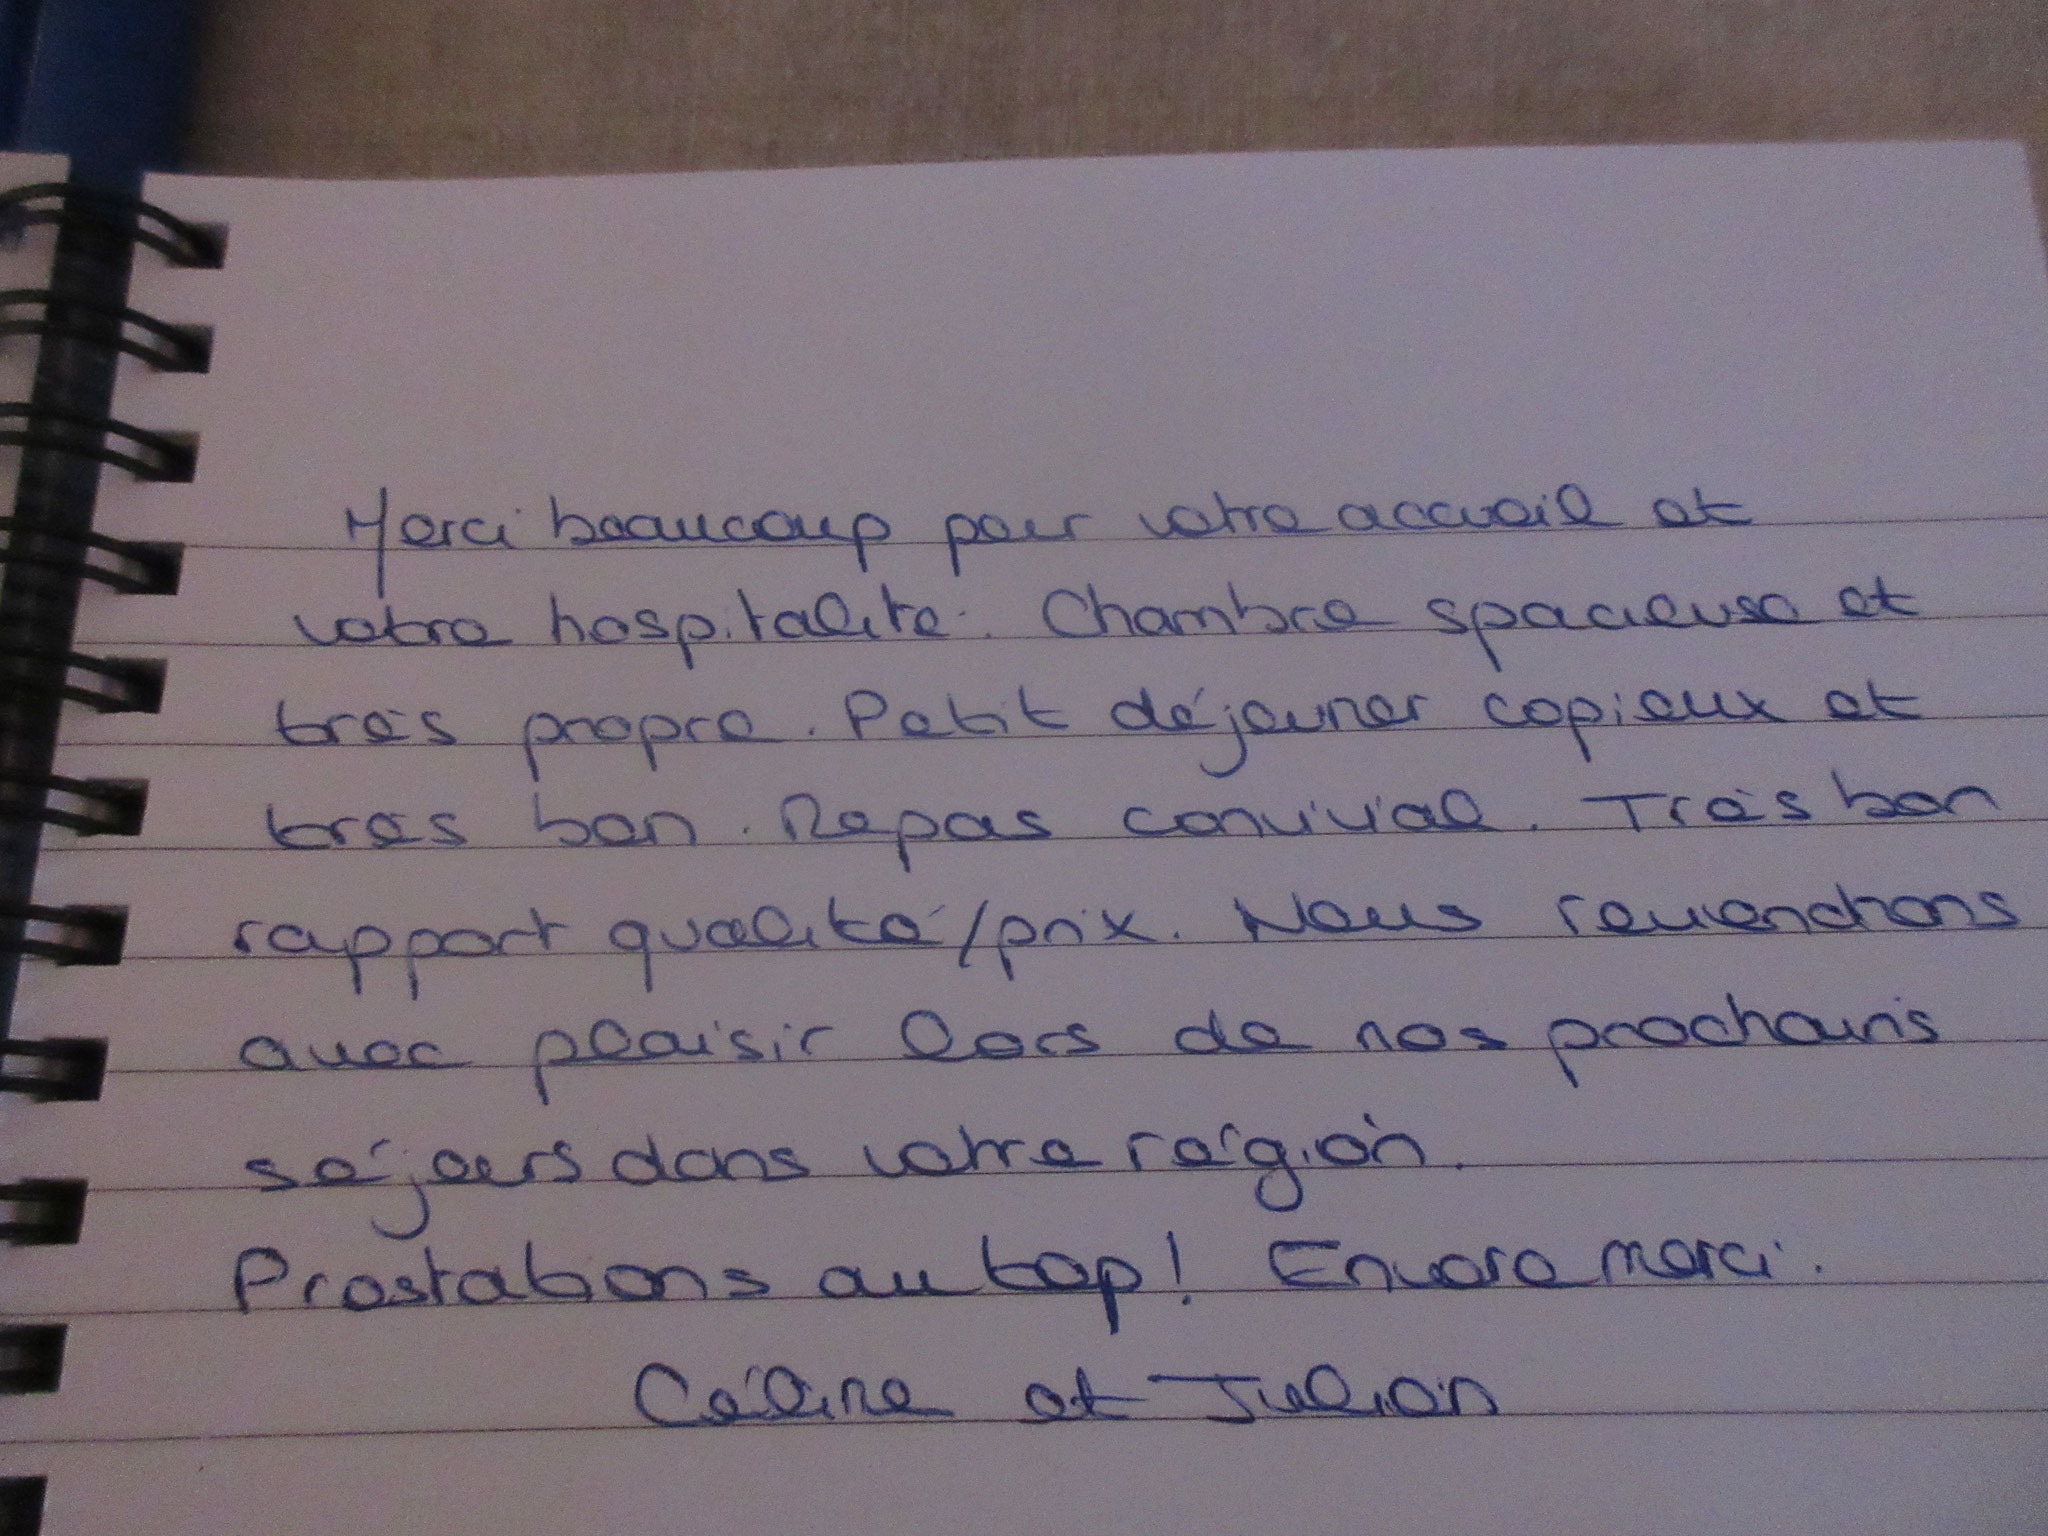 Merci beaucoup pour votre accueil et
votre hospitalité. Chambre spacieuse et
très propre. Petit déjeuner copieux et
très bon. Repas convivial. Très bon
rapport qualité/prix. Nous reviendrons
avec plaisir lors de nos prochains
séjours dans votre région.
Prestations au top! Encore merci.
Céline et Julien